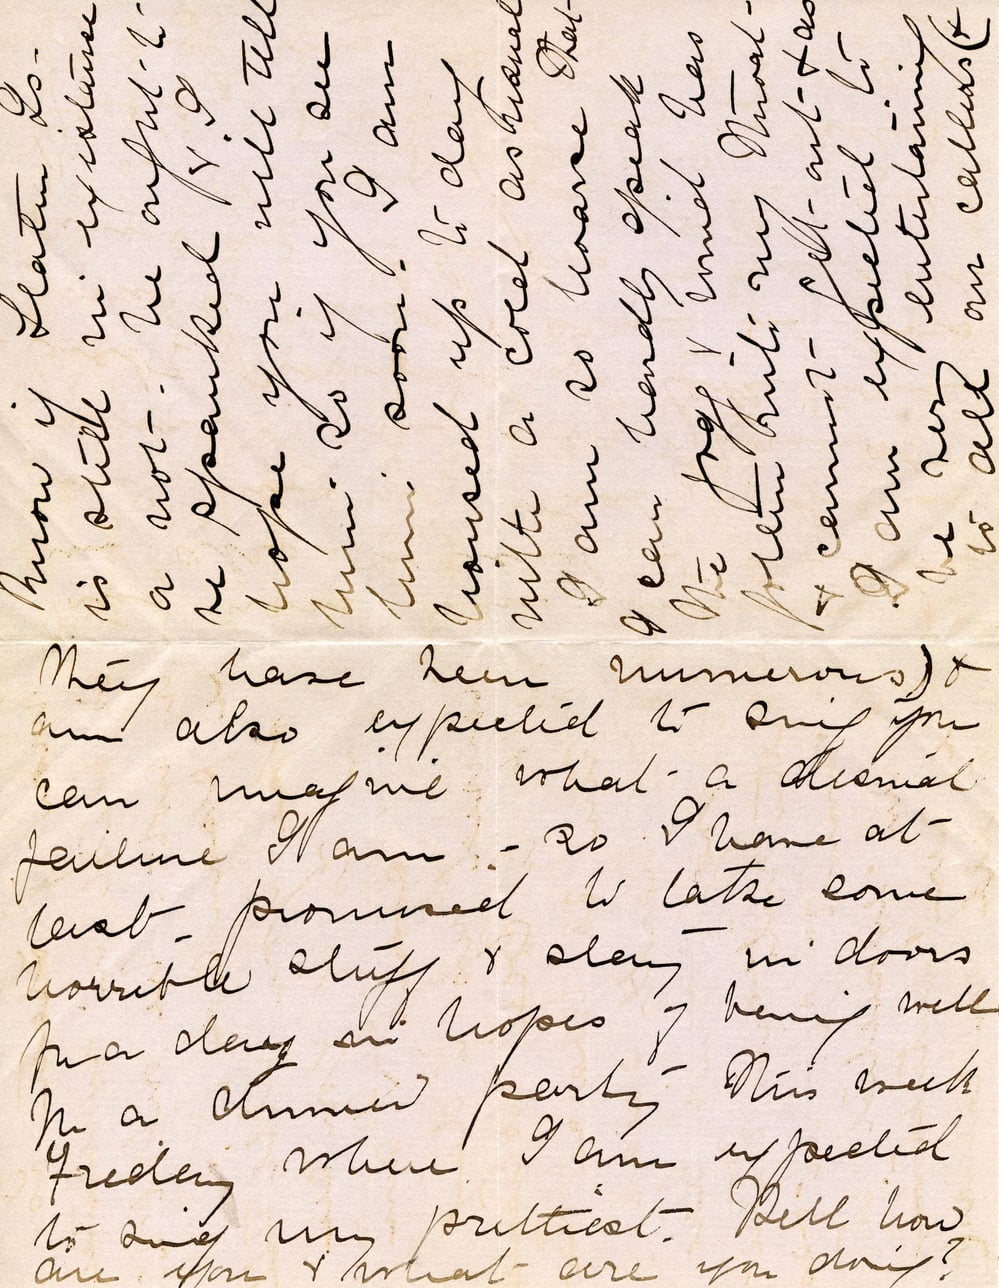 know if Slatin Is-
is still in existance
a not - he ought to
be spanked & I
hope you will tell
him so if you see
him soon. I am
housed up to day
with a cold ashamed
I am so hoarse that
I can hardly speak
The fog & wind has
gotten into my throat
& cannot get out & as
I am expected to
be very entertaining
to all our callers (&
they have been numerous) &
am also expected to sing you
can imagine what a dismal
failure I am - so I have at
last promised to take some
horrible stuff & stay in doors
for a day in hopes of being well
for a dinner party this week
Friday where I am expected
to sing my prettiest. Well how
are you & what are you doing?